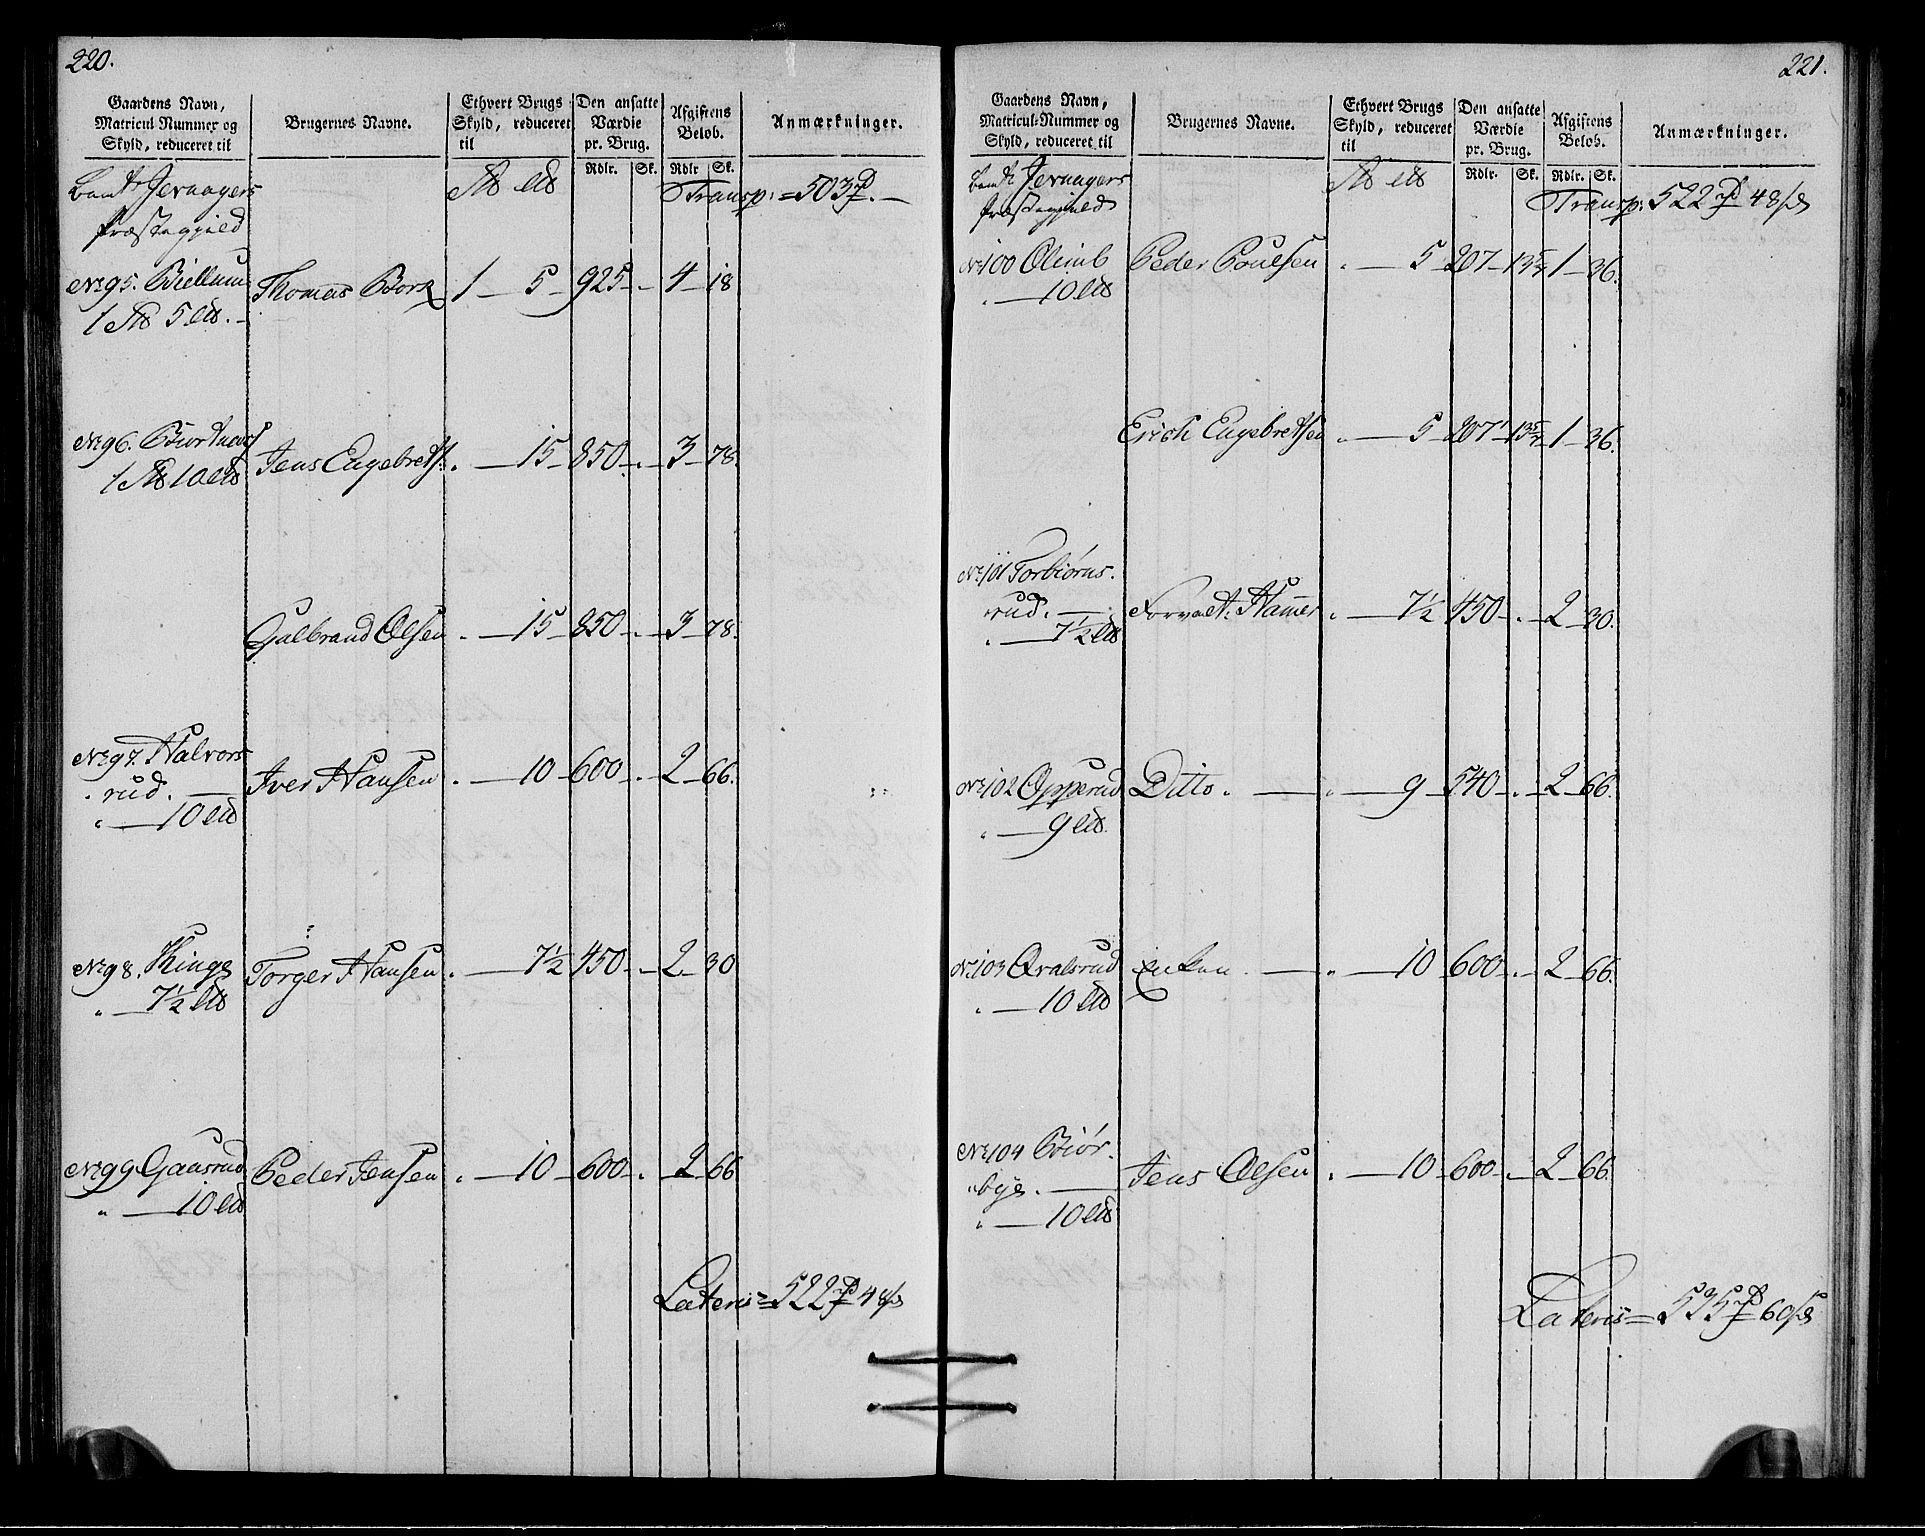 220.
Gaardens Navn, Matricul-Nummer og Skyld, reduceret til | Brugernes Navne. | Ethvert Brugs Skyld, reduceret til | Den ansatte Værdie pr. Brug. Rdlr. Sk. | Afgiftens Beløb. Rdlr Sk. | Anmærkninger.
Jevnagers
Præstegjield
Transp: = 503
No 95. Biellum Thomas Bork 1 — 5 — 925 — . — 4 — 18
1 5
No 96. Jens Engebretss. . — 15 — 850 — . — 3 — 78.
1 10
Gulbrand Olsen . — 15 — 850 — . — 3 — 78.
No 97. Halvors
rud. — Iver Hansen . — 10 — 600 — . — 2 — 66.
" — 10
No 98. Kinge Torger Hansen . — 7½ 450 — . — 2 — 30
" — 7½
No 99 Gausrud Peder Jensen . — 10 — 600 — . — 2 — 66
" — 10
Lateris = 522 48
221.
Gaardens Navn, Matricul-Nummer og Skyld, reduceret til | Brugernes Navne. | Ethvert Brugs Skyld, reduceret til | Den ansatte Værdie pr. Brug. Rdlr. Sk. | Afgiftens Beløb. Rdlr. Sk. | Anmærkninger.
Jevnagers
Præstegjield
Transp: 522 48
No 100 Olimb Peder Poulsen . — 5 — 207 — 1 — 36.
. — 10
Erich Engebretsen . — 5 — 207 — 1 — 36.
No 101 Torbiørns-
rud. — Forvalt. Hamer . — 7½ 450 — . — 2 — 30.
. — 7½
No 102 Opperud Ditto. — . — 9 — 540 — . — 2 — 66.
. — 9
No 103 Qvalsrud Enken — " — 10 — 600 — . — 2 — 66.
. — 10
No 104 Biør-
bye. — Jens Olsen . — 10 — 600 — . — 2 — 66.
" — 10
Lateris = 535 60